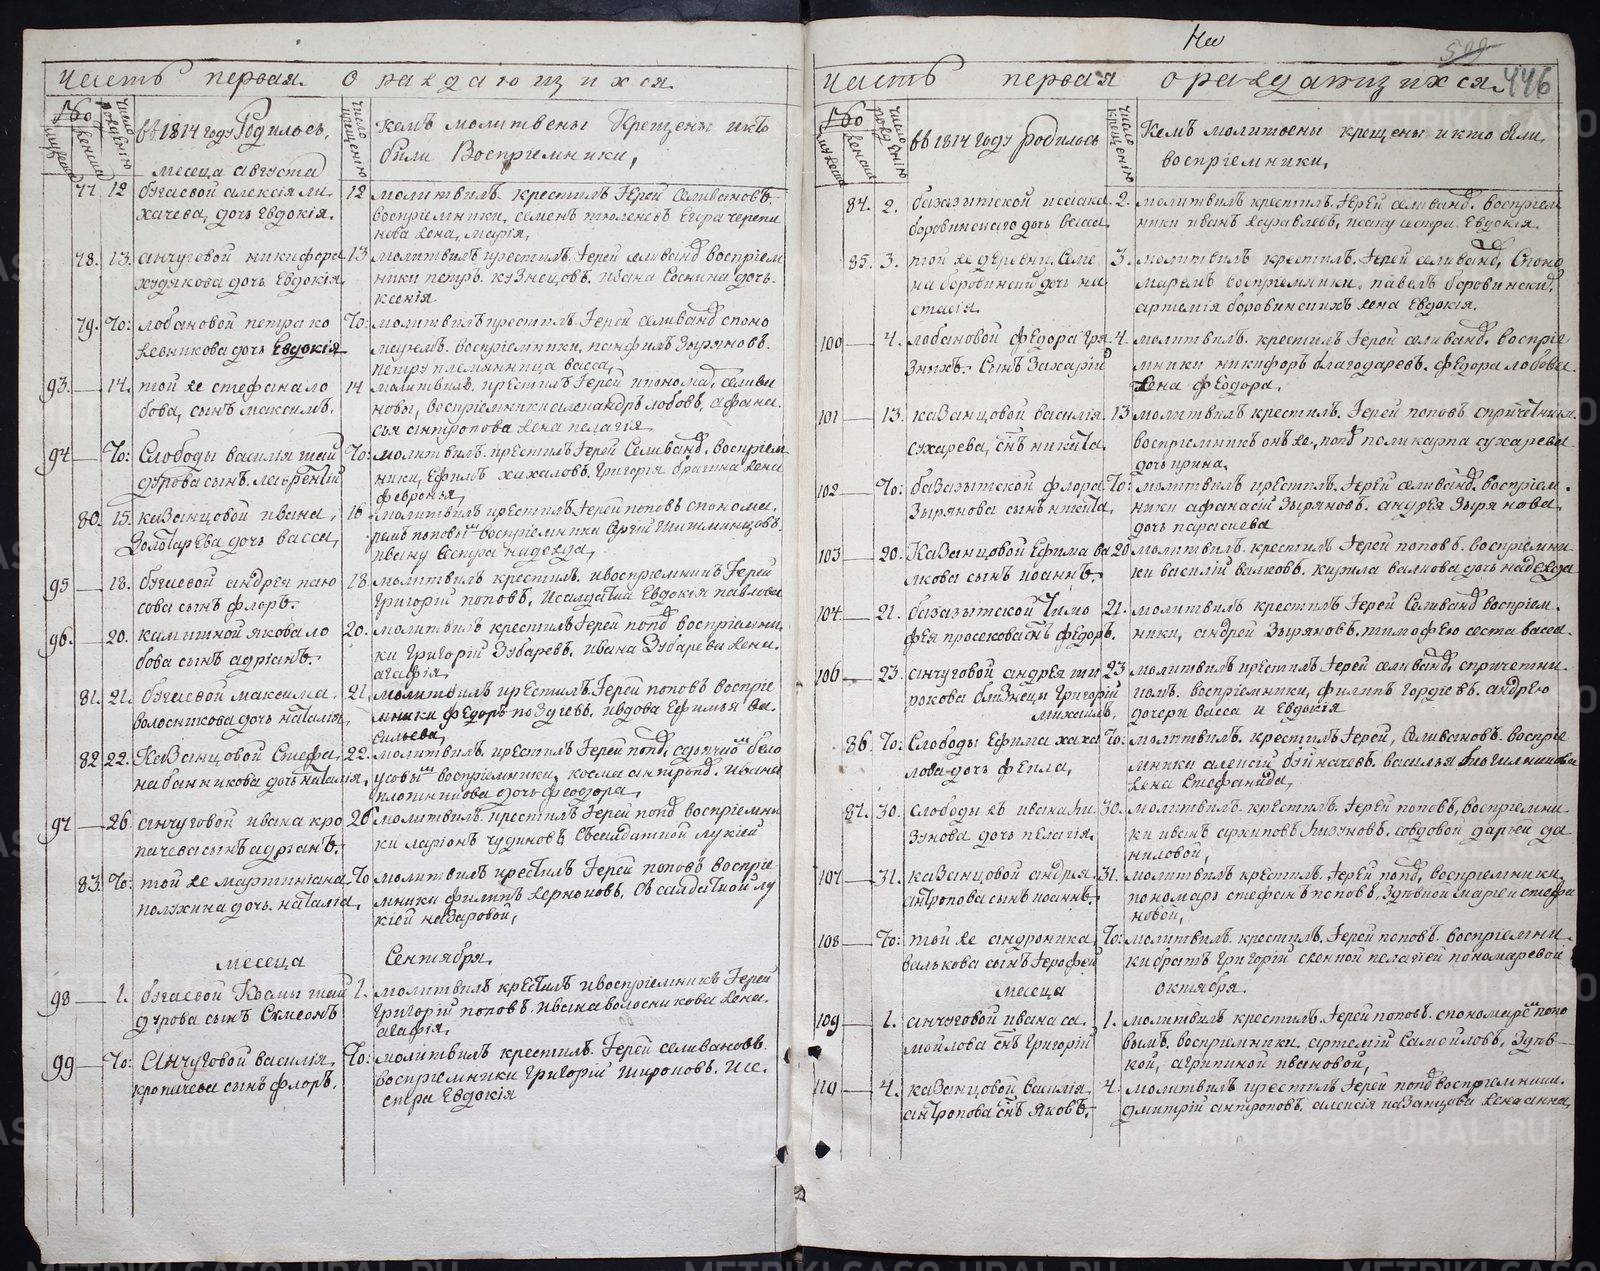 Часть первая о раждающихся
в 1814 году Родилось,
Кемъ молитвены Крещены и кто
были Восприемники,
месеца августа
77 12 бугаевой алексія ли
хачева, дочь Евдокія.
12 молитвилъ крестилъ Іерей Селивановъ
восприемники, семенъ тюленевъ Егора черепа
нова жена, марія,
78. 13. анчуговой никифора
худякова дочь Евдокія
13 молитвилъ крестилъ Іерей селиванд восприем
ники петръ кузнецовъ. ивана Соснина дочь
ксенія
79. то: лобановой петра ко
жевникова дочь Евдокія
то: молитвилъ крестилъ Іерей селиванд споно
маремъ. восприемники, панфилъ Зыряновъ.
петру племянница васса,
93. 14. той же стефана ло
бова, сынъ максимъ.
14 молитвилъ, крестилъ Іерей
новы, восприемники александръ лобовъ, афана
сья антропова жена пелагія
94 то: Слободы василія шай
дурова сынъ лаврентій
то: молитвилъ крестилъ Іерей Селиванд. восприем
ники, Ефимъ хахаловъ. Григорія брагина жена
февронья
80. 15. казанцовой ивана,
Золотарева дочь васса,
16 молитвилъ крестилъ Іерей поповъ спонома.
ремъ поповы восприемники
ивану сестра надежда,
95 18. бугаевой андрея паю
сова сынъ флоръ.
18. молитвилъ крестилъ. и восприемникъ Іерей
Григорій поповъ, и салдатка Евдокія павлова
96. 20. камышной якова ло
бова сынъ адріанъ.
20. молитвилъ крестилъ Іерей попд восприемни
ки Григорій Зубаревъ. ивана Зубарева жена.
агафія,
81. 21. бугаевой максима.
волосникова дочь наталия,
21. молитвилъ крестилъ. Іерей поповъ восприе
мники федоръ поздеевъ. и вдова Ефимья ва.
сильева,
82 22. Казанцовой Стефа,
на банникова дочь наталия,
22. молитвилъ. крестилъ Іерей попд, сдьячио бело
усовы восприемники, косма антропд. ивана
плотникова дочь феодора,
97 26. анчуговой ивана кро
пачева сынъ адріанъ.
26 молитвилъ. крестилъ Іерей попд восприемни
ки ларіонъ чудиновъ Ссалдаткой лукіей
83. то: той же мартиніана
полухина дочь. наталія,
то молитвилъ крестилъ Іерей поповъ восприе
мники филипъ жерноковъ, Съ салдаткой лу
кіей назаровой,
месеца Сентября,
98 1. бугаевой Космы шай
дурова сынъ Симеонъ
1. молитвилъ крестилъ и восприемникъ Іерей
Григорій поповъ. ивана волосникова жена.
агафія,
99 то: Анчуговой василія
кропачева сынъ флоръ.
то: молитвилъ крестилъ. Іерей селивановъ
восприемники Григорій широковъ. и се.
стра Евдокія
446
часть первая о раждающихся
в 1814 году родилось
Кемъ молитвены крещены и кто были
восприемники,
84. 2. баказытской исаака
боровинскаго дочь васса
2. молитвилъ крестилъ. Іерей селиванд. восприем
ники иванъ журавлевъ, исаку сестра. Евдокія
85. 3. той же деревни, Семе
на боровинскій дочь на
стасія
3. молитвилъ крестилъ. Іерей селиванд, Споно
маремъ восприемники. павелъ боровинскій,
артемія боровинскихъ жена Евдокія.
100 4. лобановой федора Гря
зныхъ. Сынъ Захарій
4. молитвилъ. крестилъ Іерей селиванд. восприе
мники никифоръ благодаревъ. федора лобова
жена феодора,
101 13. казанцовой василія
сухарева, снъ никита
13 молитвилъ крестилъ. Іерей поповъ спричетники
восприемникъ онъ же, попд поликарпа сухарева
дочь ирина,
102 то: баказытской флора
Зырянова сынъ никита,
то: молитвилъ крестилъ. Іерей селиванд. восприем.
ники афанасій Зыряновъ. андрея Зырянова,
дочь парасиева
103 20. Казанцовой Ефима ва
лкова сынъ иоаннъ.
20 молитвилъ. крестилъ Іерей поповъ. восприемни
ки василій валковъ. кирила валкова дочь надежда
104. 21. баказытской Тимо
фея просекова снъ федоръ.
21. молитвилъ крестилъ Іерей Селиванд восприем.
ники, андрей Зыряновъ. тимофею сестра васса.
106 23. анчуговой андрея ши
рокова близнецы Григорій
михаилъ,
23 молитвилъ крестилъ Іерей селиванд. спричетни
комъ. восприемники, филипъ Гордеевъ. андрею
дочери васса и Евдокія
86. то: Слободы Ефима хаха
лова дочь фекла,
то: молитвилъ. крестилъ Іерей, Селивановъ. восприе
мники алексій буйначевъ. василья
жена Стефанида,
87. 30. слободы жъ ивана Ли
зунова дочь пелагія.
30. молитвилъ. крестилъ. Іерей поповъ, восприемни
ки иванъ архиповъ Лизуновъ. совдовой дарьей да
ниловой,
107 31. казанцовой андрея
антропова сынъ иоаннъ,
31. молитвилъ крестилъ. Іерей попд, восприемники
пономарь стефанъ поповъ, марией стефа
новой,
108 то: той же андроника,
валькова сынъ Іерофей
то: молитвилъ. крестилъ. Іерей поповъ. восприемни
ки братъ Григорій сженной пелагеей пономаревой
месеца октября.
109 1. анчуговой ивана са.
мойлова снъ Григорій
1. молитвилъ крестилъ. Іерей поповъ. спономаремъ попо
вымъ. восприемники, артемій Самойловъ,
кой, агрипиной ивановой,
110 4. казанцовой, василія
антропова снъ Яковъ.
4. молитвилъ крестилъ Іерей попд восприемники.
дмитрій антроповъ. алексія казанцова жена анна,
METRIKI.GASO-URAL.RU